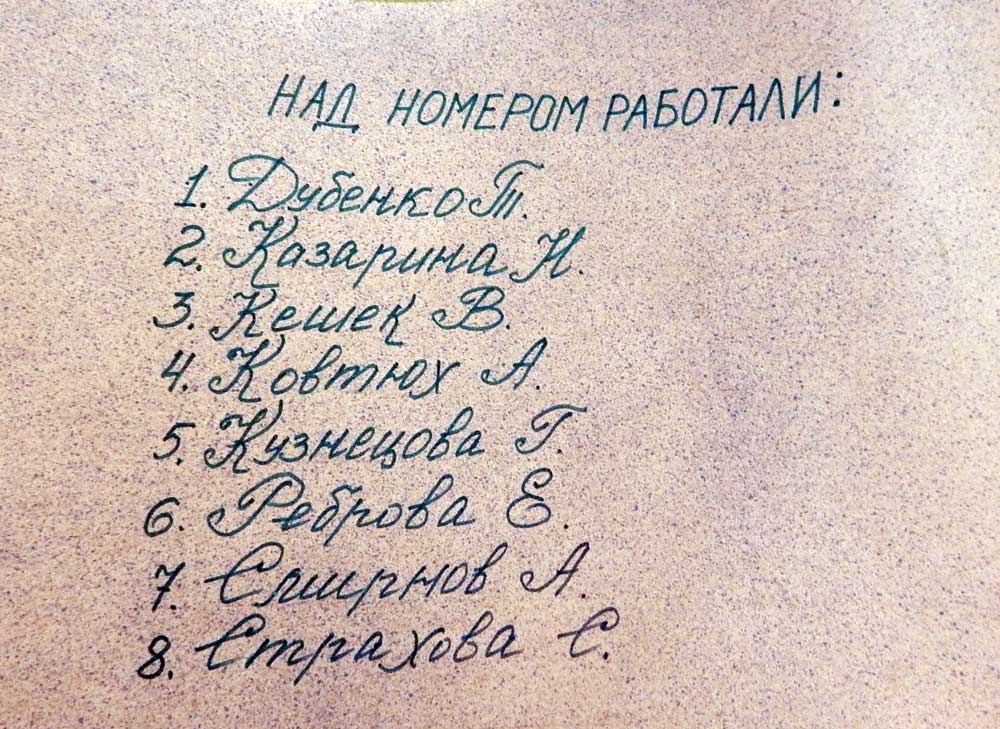 НАД НОМЕРОМ РАБОТАЛИ:
1. Дубенко Т.
2. Казарина Н.
3. Кешек В.
4. Ковтюх А.
5. Кузнецова Г.
6. Реброва Е.
7. Смирнов А.
8. Страхова С.